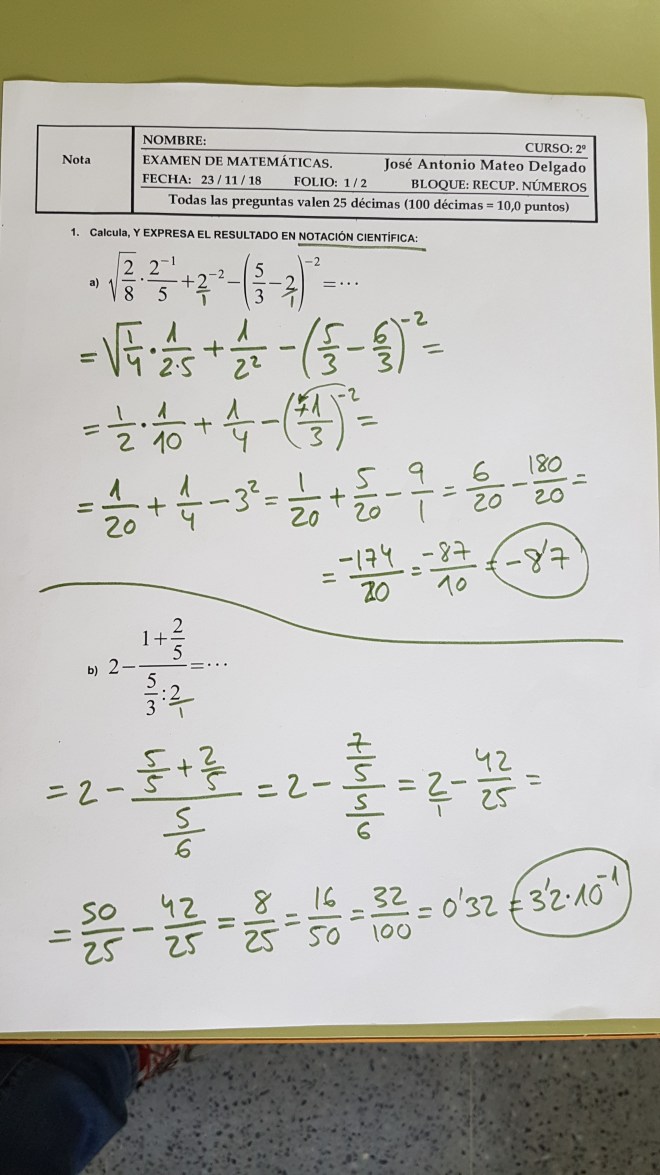 Nota
NOMBRE: CURSO: 2º
EXAMEN DE MATEMÁTICAS. José Antonio Mateo Delgado
FECHA: 23 / 11 / 18 FOLIO: 1 / 2 BLOQUE: RECUP. NÚMEROS
Todas las preguntas valen 25 décimas (100 décimas = 10,0 puntos)
1. Calcula, Y EXPRESA EL RESULTADO EN NOTACIÓN CIENTÍFICA:
a) √(2/8) · 2⁻¹/5 + 2⁻²/1 − (5/3 − 2/1)⁻² = ···
= √(1/4) · 1/(2·5) + 1/2² − (5/3 − 6/3)⁻² =
= 1/2 · 1/10 + 1/4 − (+1/3)⁻² =
= 1/20 + 1/4 − 3² = 1/20 + 5/20 − 9/1 = 6/20 − 180/20 =
= −174/20 = −87/10 = −8'7
b) 2 − (1 + 2/5)/(5/3 : 2/1) = ···
= 2 − (5/5 + 2/5)/(5/6) = 2 − (7/5)/(5/6) = 2/1 − 42/25 =
= 50/25 − 42/25 = 8/25 = 16/50 = 32/100 = 0'32 = 3'2·10⁻¹